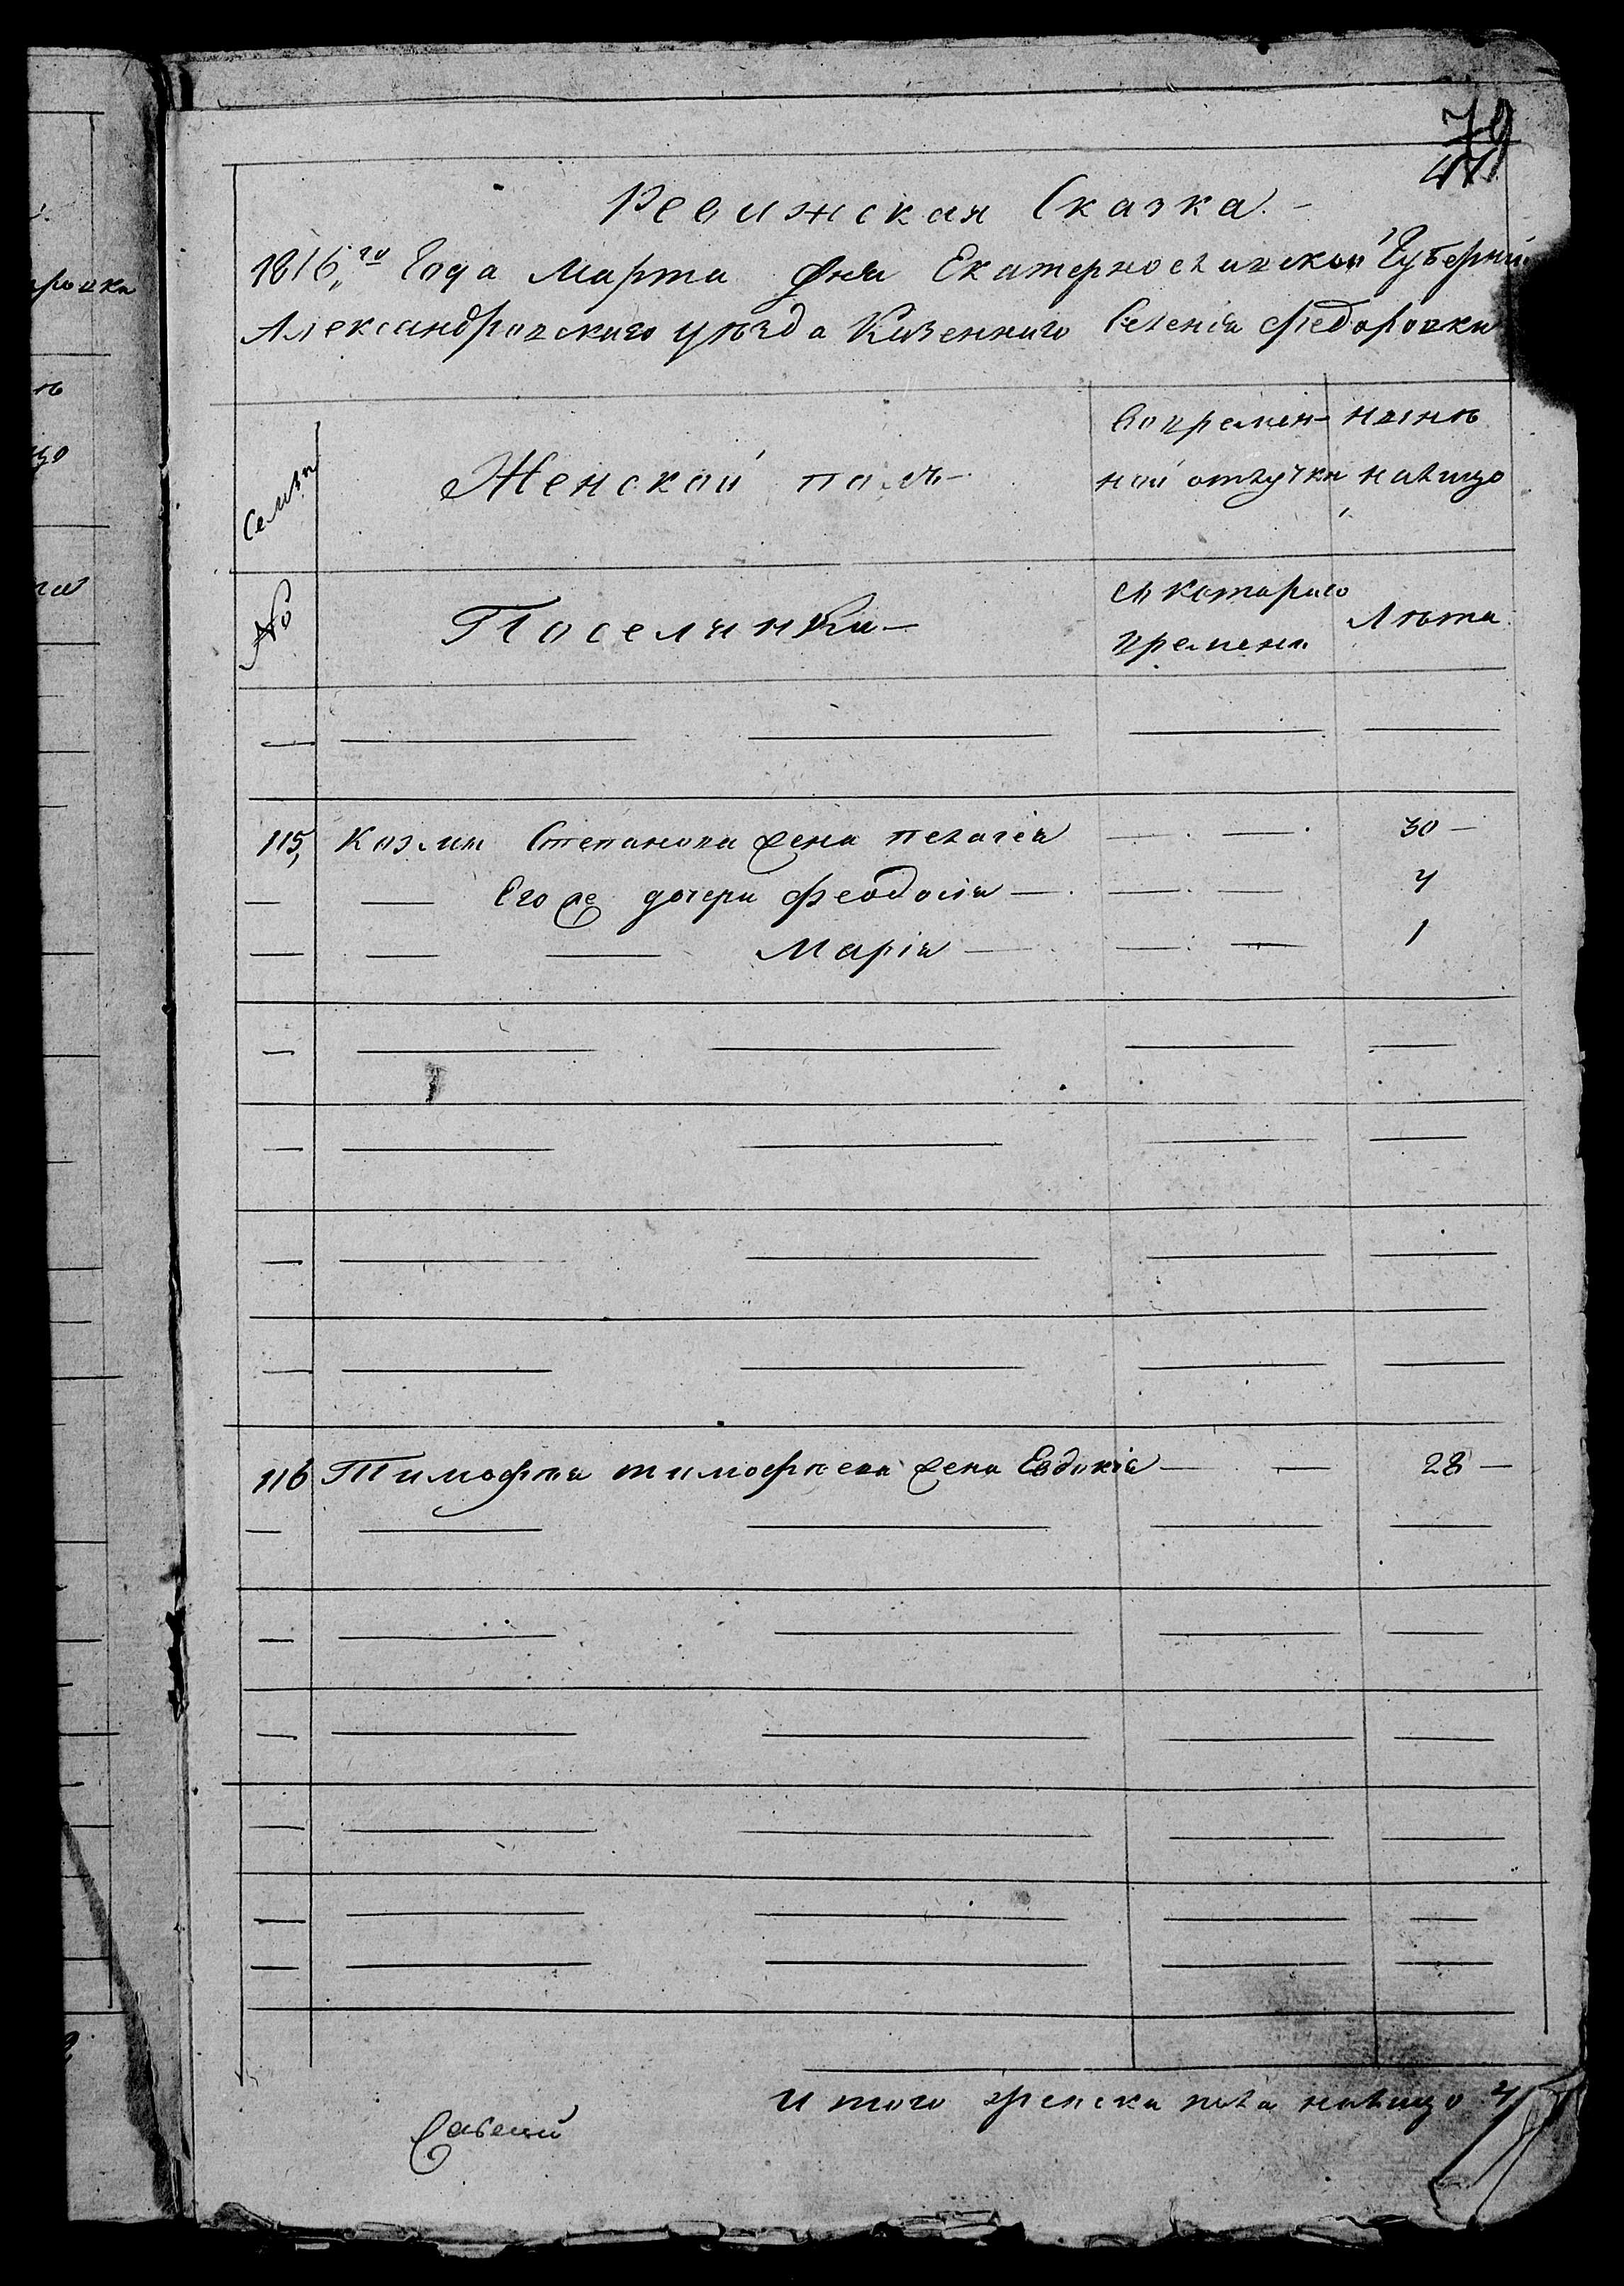 79
Ревижская Сказка.
1816,го Года Марта дня Екатеринославской Губерніи
Александровскаго уѣзда Казеннаго Селенія Федоровки
Семьи
Женской полъ
Во времен-
ной отлучки
нынѣ
налицо
№
Поселянки
съ котораго
времени
Лѣта
115, Козмы Степанова жена пелагея 30
Его же дочери Феодосія 4
Марія 1
116 Тимофѣя тимофѣева жена Евдокія 28
Итого женска пола налицо 4